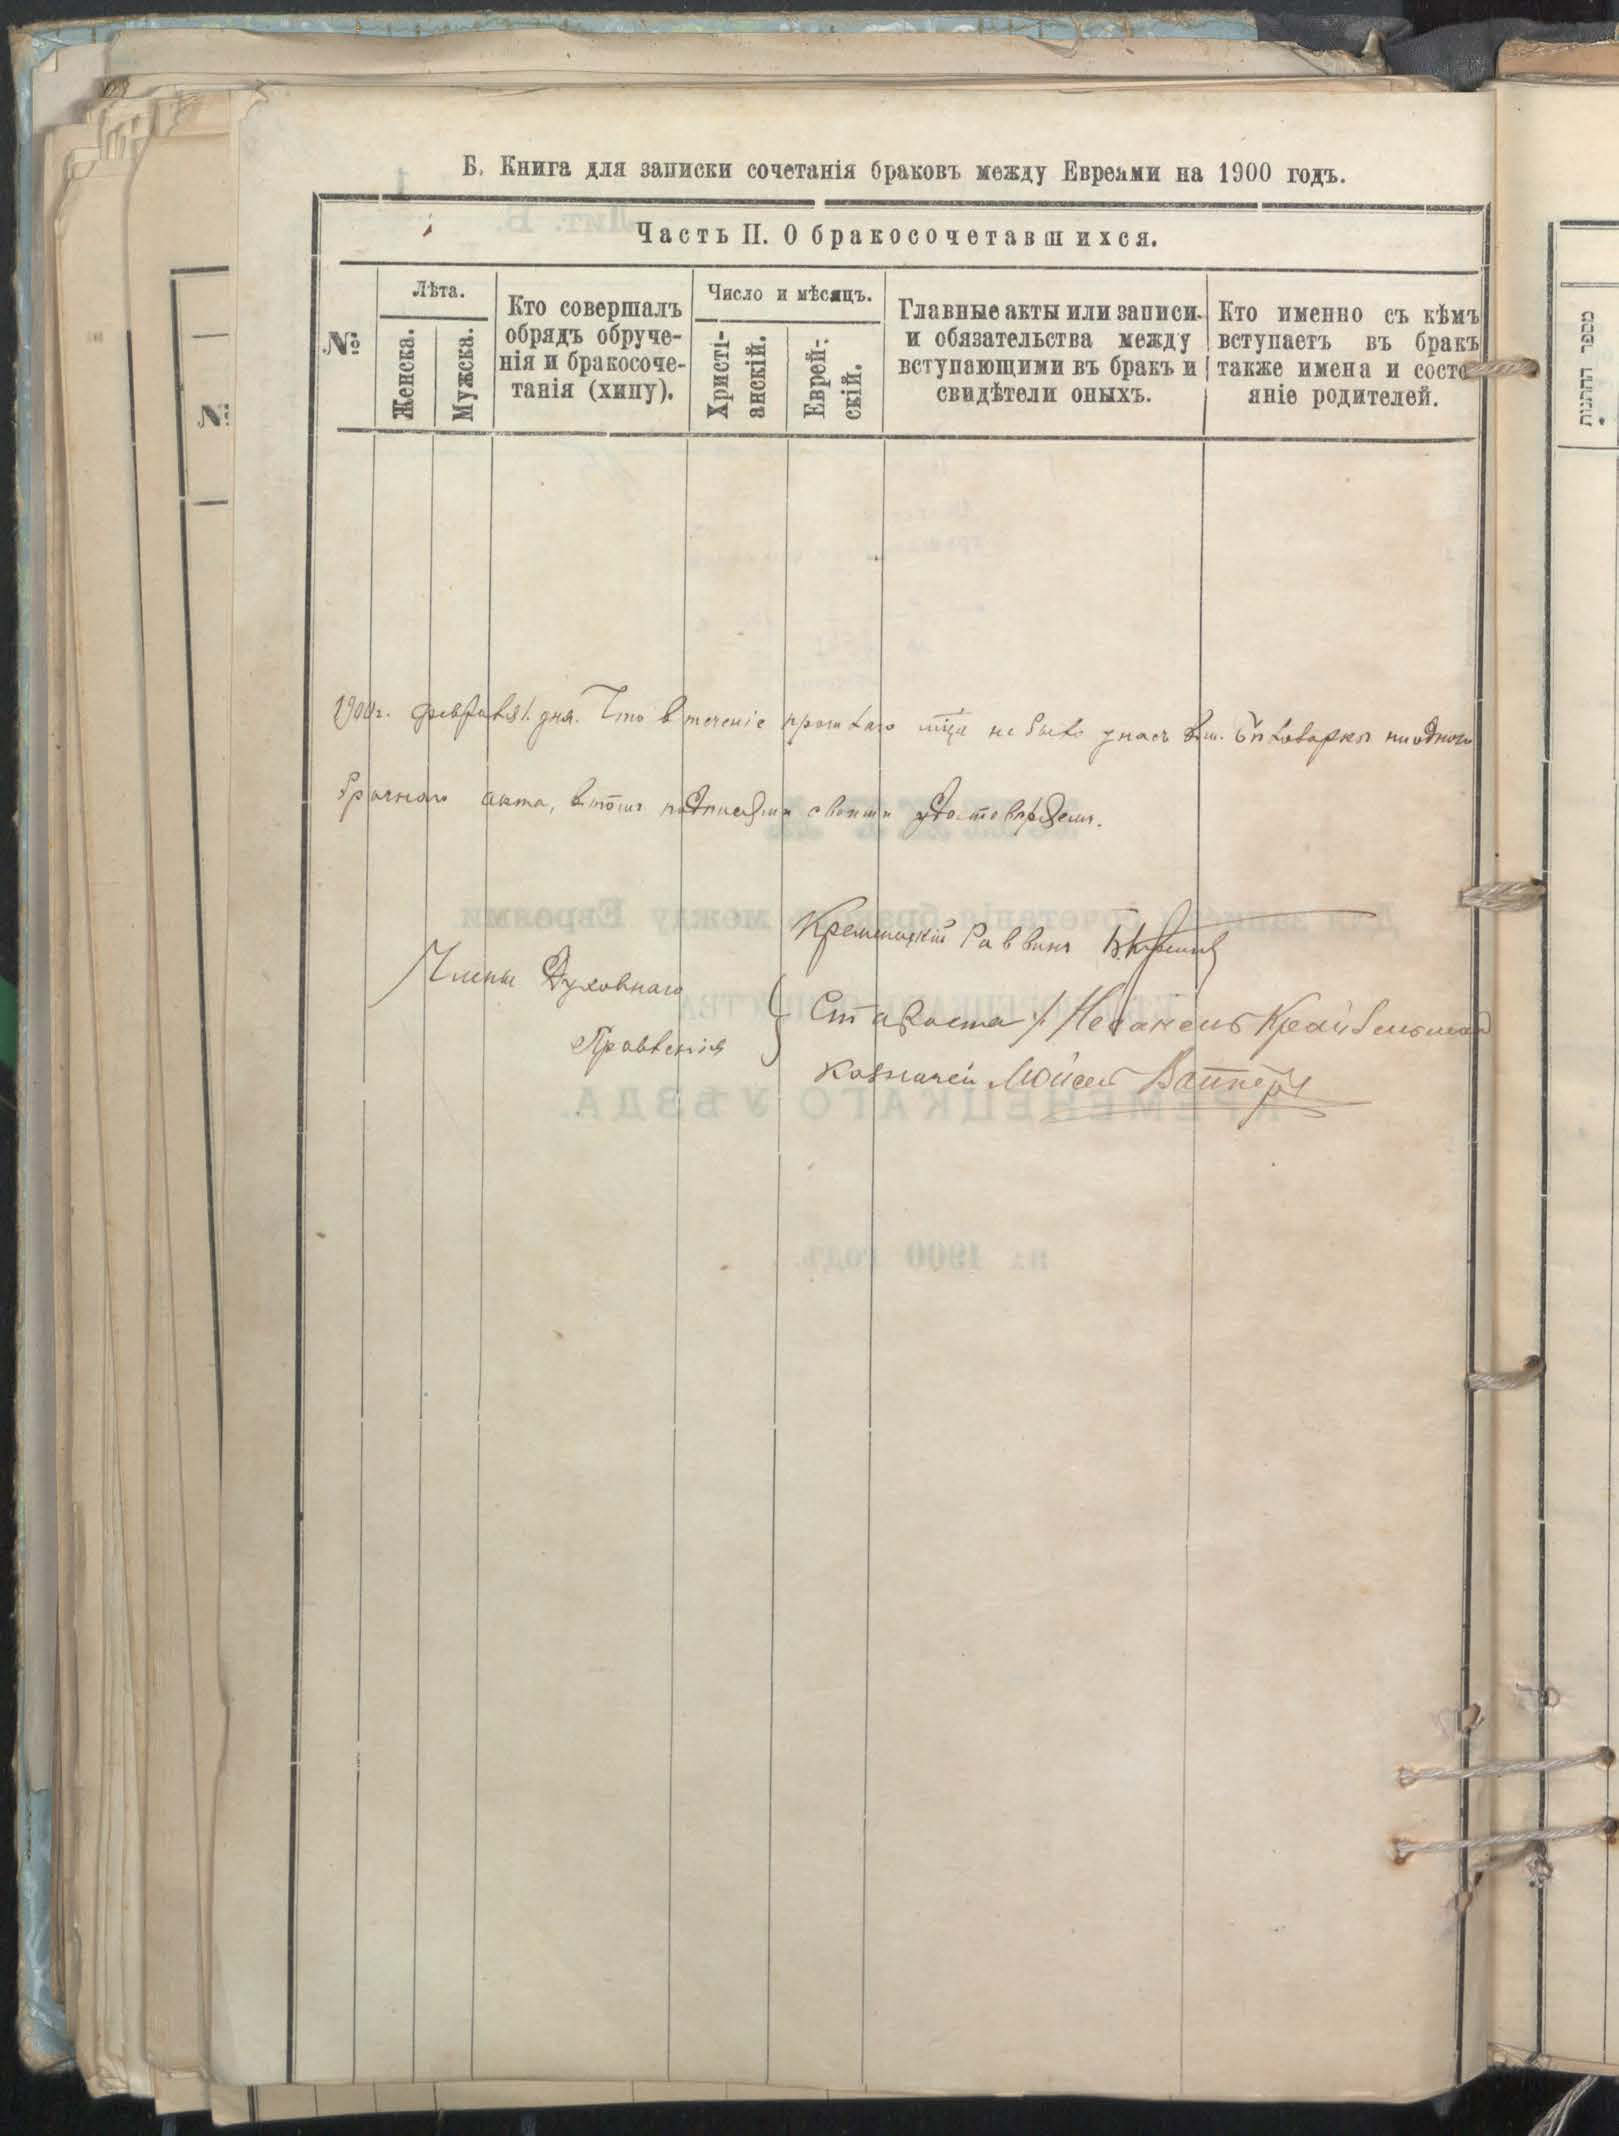 Б. Книга для записки сочетанія браковъ между Евреями на 1900 годъ.
Часть II. О бракосочетавшихся.
№
Лѣта.
Женска.
Мужска.
Кто совершалъ
обрядъ обруче-
нія и бракосоче-
танія (хипу).
Число и мѣсяцъ.
Христі-
анскій.
Еврей-
скій.
Главные акты или записи
и обязательства между
вступающими въ бракъ и
свидѣтели оныхъ.
Кто именно съ кѣмъ
вступаетъ въ бракъ
также имена и состо
яніе родителей.
1900 г. февраля 1 дня. Что в теченіе прошлаго мѣца не было у насъ в м. ни одного
брачнаго акта, в томъ подписями своими удостовѣряемъ.
Кременецкій Раввинъ
Члены Духовнаго
Правленія
Староста
Казначей Мойсей
№
מספר החתונות